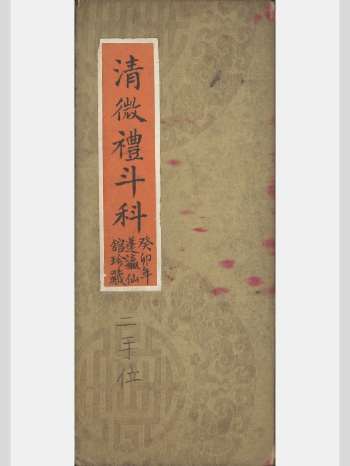 清微禮斗科
癸卯年
蓬瀛仙
舘珍藏
二手位